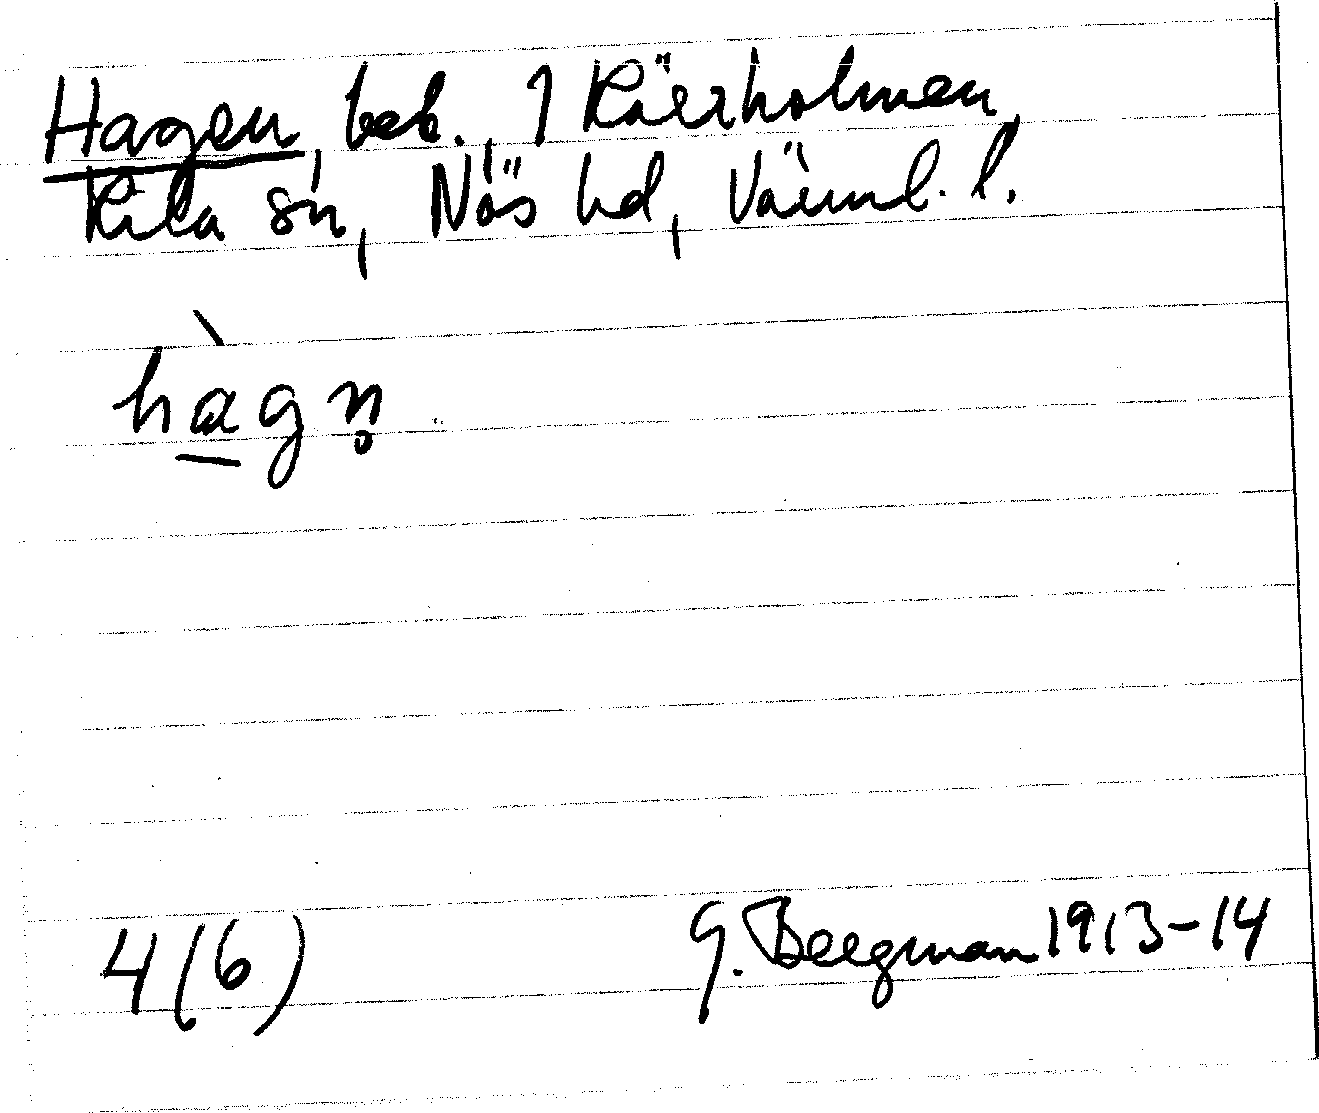 Hagen, beb., 1 Kärrholmen,
Kila sn, Näs hd, Värml. l.
hàgn̥
4(6) G. Bergman 1913-14